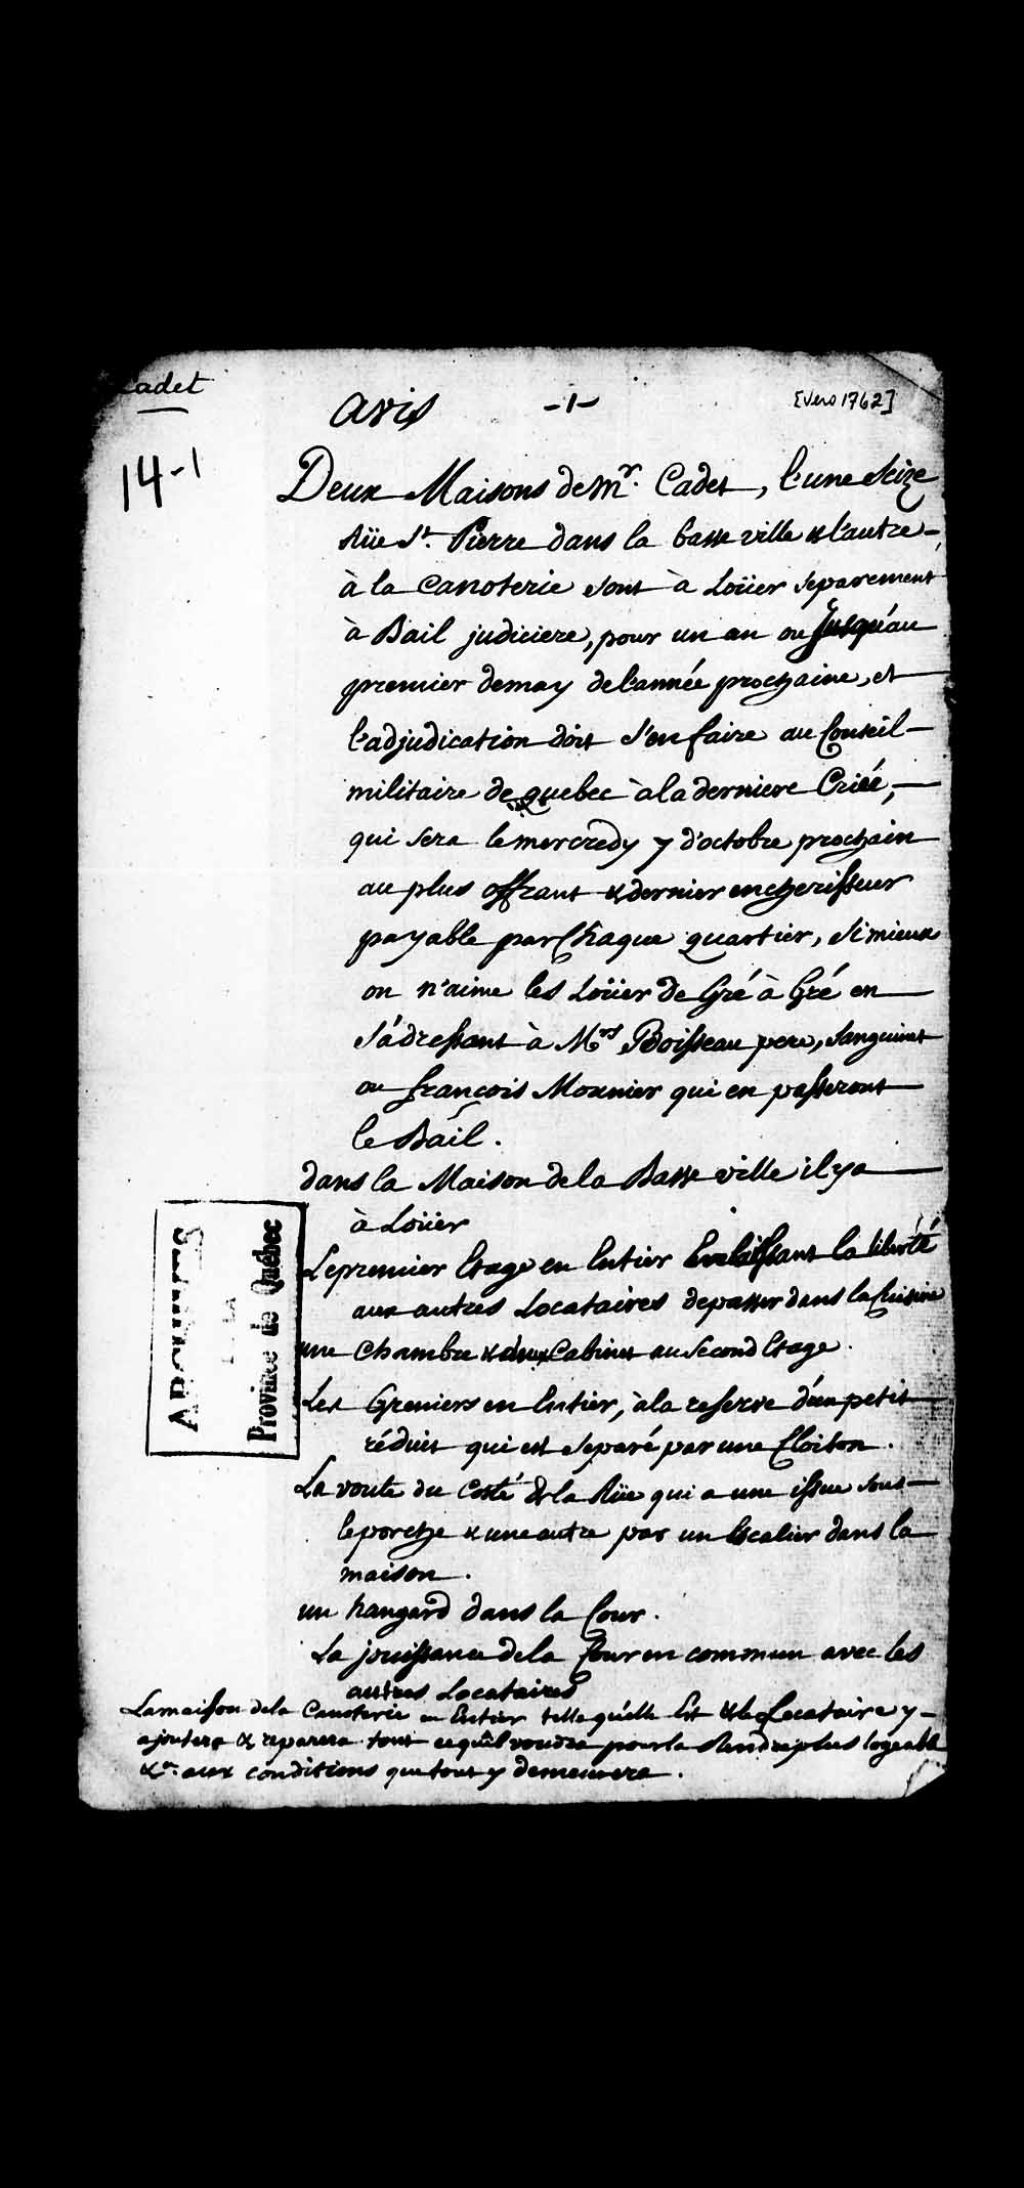 Cadet
avis -1- [vers 1762]
14-1
Deux Maisons de Mr. Cadet, l'une Seize
Rüe St. Pierre dans la basse ville & l'autre
à la Canoterie sont à Loüer separement
à Bail judiciere, pour un an ou jusqu'au
premier de may de l'année prochaine, et
l'adjudication doit s'en faire au Conseil
militaire de quebec à la derniere Criéé,
qui sera le mercredy 7 d'octobre prochain
au plus offrant & dernier encherisseur
payable par Chaque quartier, si mieux
on n'aime les Loüer de Gré à Gré en
s'adressant à Mrs Boisseau pere, Sanguinet
ou françois Mounier qui en passeront
le Bail.
dans la Maison de la Basse ville il y a
à Loüer
Le premier Etage en Entier En laissant la liberté
aux autres Locataires de passer dans la Cuisine
une Chambre & deux Cabinets au Second Etage.
Les Greniers en Entier, à la reserve d'un petit
réduit qui est separé par une Cloison.
La voute du Costé de la Rüe qui a une issue sous
le porche & une autre par un Escalier dans la
maison.
un hangard dans la Cour.
La jouissance de la Cour en commun avec les
autres Locataires
La maison de la Canoterie en Entier telle qu'elle Est & le Locataire y
ajoutera & reparera tout ce qu'il voudra pour la Rendre plus logeable
&a. aux conditions que tout y demeurera.
ARCHIVES
DE LA
Province de Québec